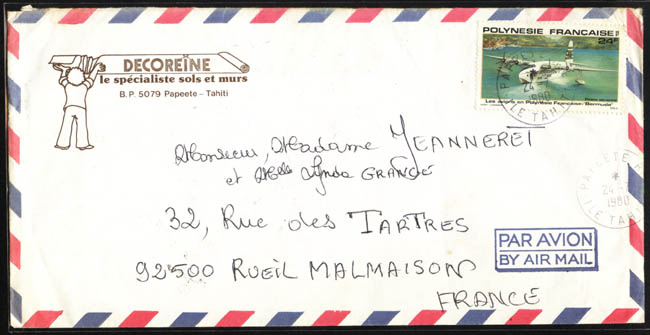 DECOREÏNE
le spécialiste sols et murs
B.P. 5079 Papeete - Tahiti
POLYNESIE FRANCAISE
24F
Les avions en Polynésie Française "Bermuda"
PAPEETE
24
1980
ILE TAHITI
Monsieur, Madame JEANNERET
et Melle Lynda GRANGÉ
32, Rue des TARTRES
92500 RUEIL MALMAISON
FRANCE
PAR AVION
BY AIR MAIL